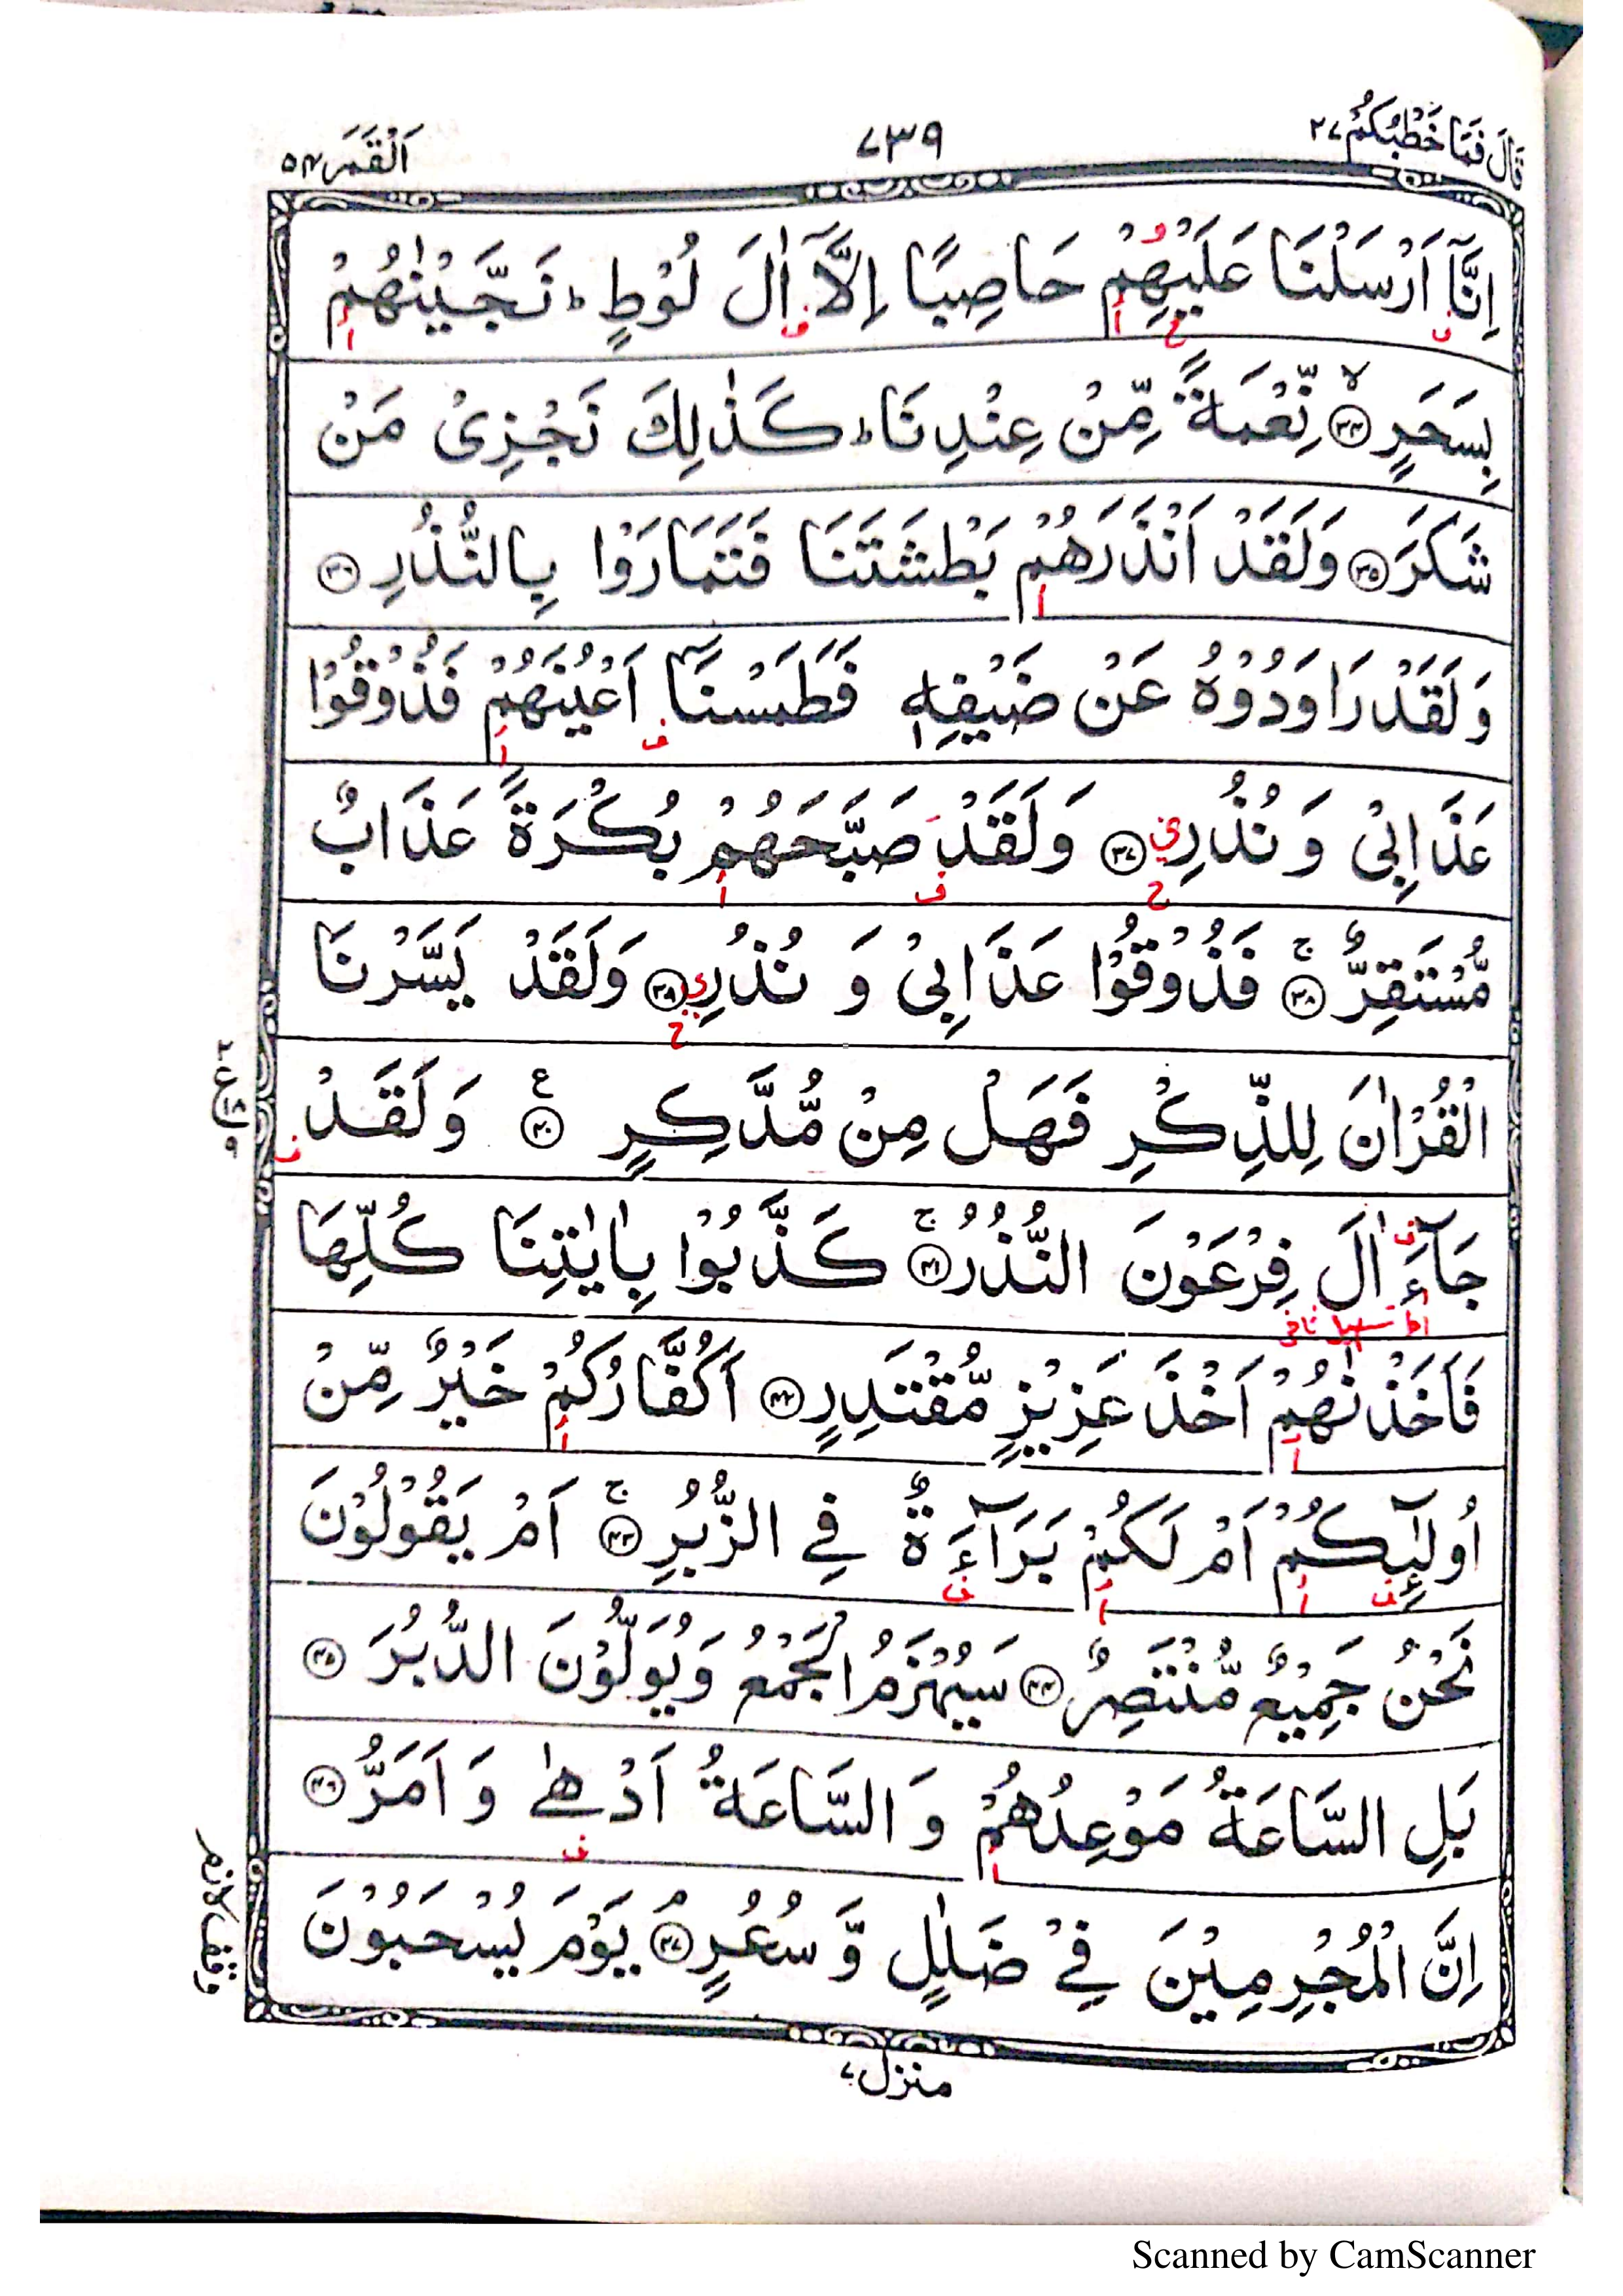 قَالَ فَمَا خَطْبُكُمْ ٢٧
٧٣٩
اَلْقَمَر ٥٤
اِنَّاۤ اَرْسَلْنَا عَلَيْهِمْ حَاصِبًا اِلَّاۤ اٰلَ لُوْطٍ ؕ نَجَّيْنٰهُمْ
بِسَحَرٍ ۙ﴿٣٤﴾ نِّعْمَةً مِّنْ عِنْدِنَا ؕ كَذٰلِكَ نَجْزِىْ مَنْ
شَكَرَ ﴿٣٥﴾ وَلَقَدْ اَنْذَرَهُمْ بَطْشَتَنَا فَتَمَارَوْا بِالنُّذُرِ ﴿٣٦﴾
وَلَقَدْ رَاوَدُوْهُ عَنْ ضَيْفِهٖ فَطَمَسْنَاۤ اَعْيُنَهُمْ فَذُوْقُوْا
عَذَابِىْ وَ نُذُرِ ﴿٣٧﴾ وَلَقَدْ صَبَّحَهُمْ بُكْرَةً عَذَابٌ
مُّسْتَقِرٌّ ۚ﴿٣٨﴾ فَذُوْقُوْا عَذَابِىْ وَ نُذُرِ ﴿٣٩﴾ وَلَقَدْ يَسَّرْنَا
الْقُرْاٰنَ لِلذِّكْرِ فَهَلْ مِنْ مُّدَّكِرٍ ﴿٤٠﴾ ع وَلَقَدْ
جَآءَ اٰلَ فِرْعَوْنَ النُّذُرُ ۚ﴿٤١﴾ كَذَّبُوْا بِاٰيٰتِنَا كُلِّهَا
فَاَخَذْنٰهُمْ اَخْذَ عَزِيْزٍ مُّقْتَدِرٍ ﴿٤٢﴾ اَكُفَّارُكُمْ خَيْرٌ مِّنْ
اُولٰٓئِكُمْ اَمْ لَكُمْ بَرَآءَةٌ فِى الزُّبُرِ ۚ﴿٤٣﴾ اَمْ يَقُوْلُوْنَ
نَحْنُ جَمِيْعٌ مُّنْتَصِرٌ ﴿٤٤﴾ سَيُهْزَمُ الْجَمْعُ وَيُوَلُّوْنَ الدُّبُرَ ﴿٤٥﴾
بَلِ السَّاعَةُ مَوْعِدُهُمْ وَ السَّاعَةُ اَدْهٰى وَ اَمَرُّ ﴿٤٦﴾
اِنَّ الْمُجْرِمِيْنَ فِىْ ضَلٰلٍ وَّ سُعُرٍ ۘ﴿٤٧﴾ يَوْمَ يُسْحَبُوْنَ
وقف لازم
منزل ٧
Scanned by CamScanner